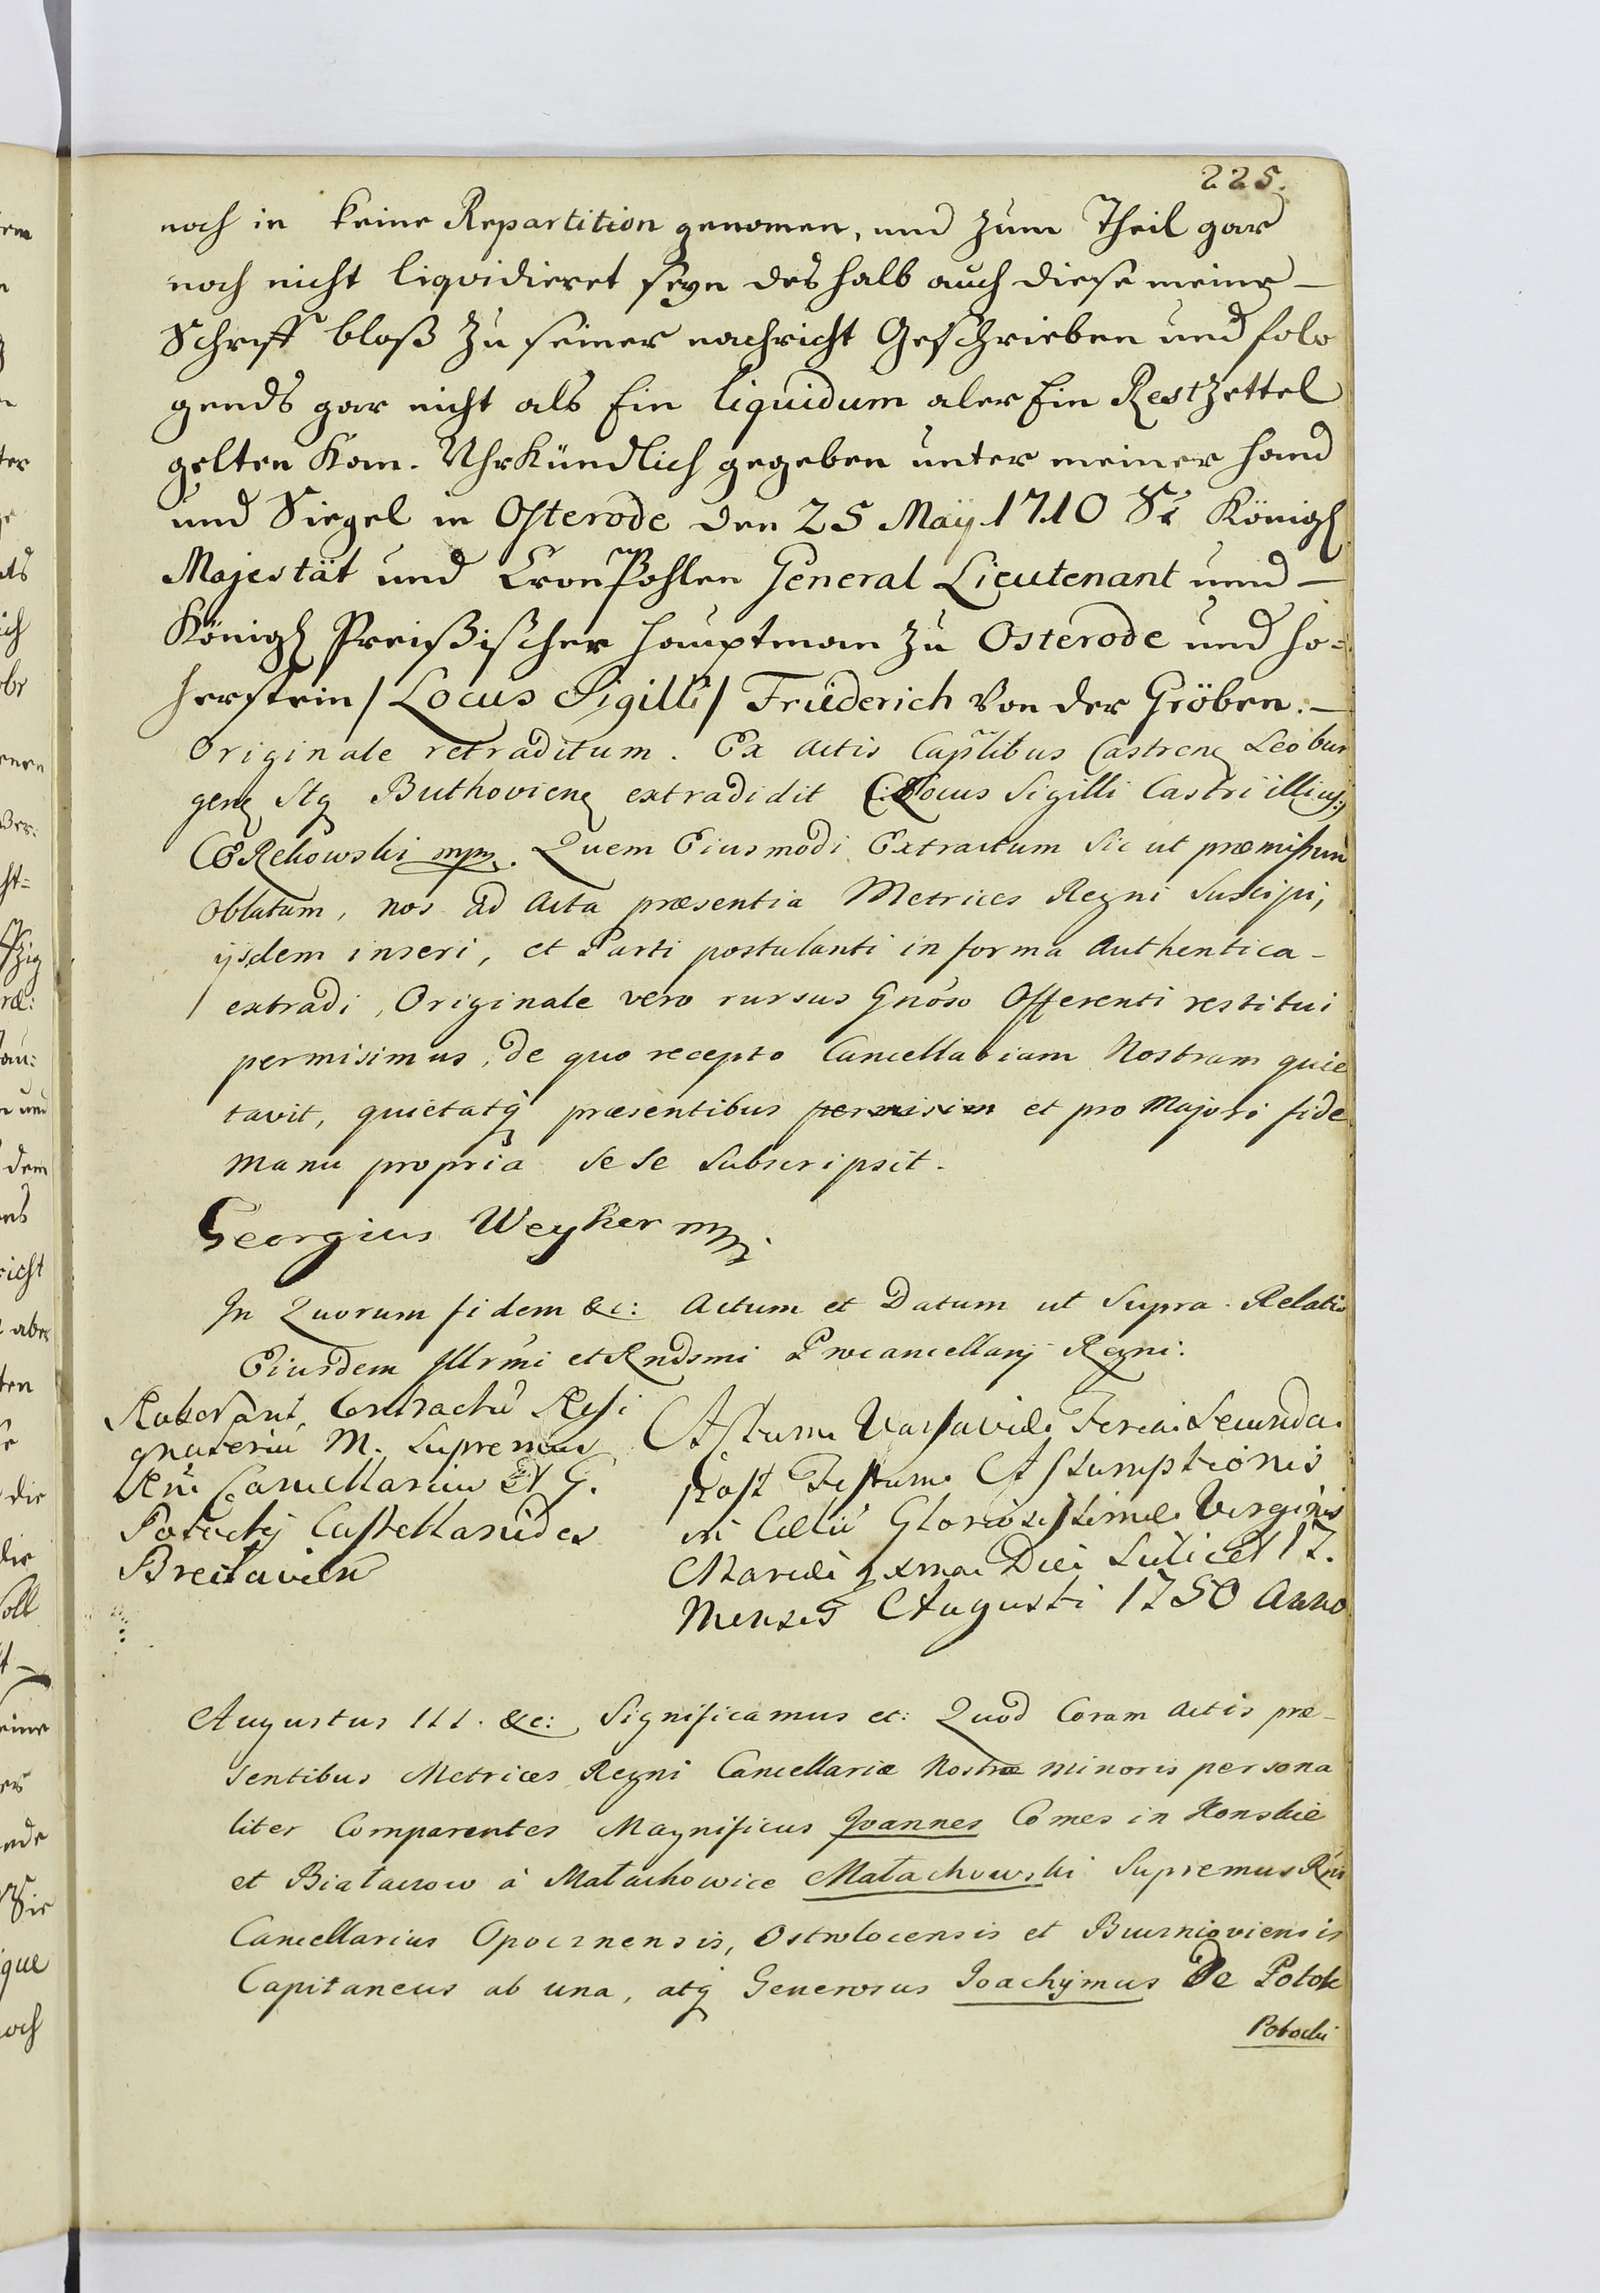 225.
noch in keine Repartition genomen, und zum Theil gar
noch nicht liqvidieret seyn deshalb auch diese meine –
Schrifft bloß zu seiner nachricht Geschrieben und fol
gends gar nicht als Ein liquidum aler Ein Restzettel
gelten Kan. Uhrkündlich gegeben unter meiner Hand
und Siegel in Osterode den 25 Maÿ 1710 Sr Königl
Majestät und Cron Pohlen General Lieutenant und –
Königl Preißischer Hauptman zu Osterode und Ho=
herstein / Locus Sigilli / Friederich von der Gröben. –
Originale retraditum. Ex Actis Caplibus Castren Leobur
gen Stq Buthovien extradidit (: Locus Sigilli Castri illius :)
Rekowski mp. Quem Eiusmodi Extractum Sic ut præmissum
Oblatum, nos ad Acta præsentia Metrices Regni Suscipi,
ijsdem inseri, et Parti postulanti in forma Authentica –
extradi, Originale vero rursus Gnoso Offerenti restitui
permisimus, de quo recepto Cancellariam Nostram quie
tavit, quietatq præsentibus et pro Majori fide
manu propria Se Se Subscripsit.
Georgius Weyher mp.
In Quorum fidem &c: Actum et Datum ut Supra. Relatio
Eiusdem Illrmi et Rndsmi Procancellarij Regni.
Roborant Contractu Resi
gnatoriu M. Supremus
Rni Cancellarius Et G.
Potockij Castellanides
Breslavien
Actum Varsaviæ Feria Secunda
post Festum Assumptionis
in Cœlū Gloriosissimæ Virginis
Mariæ Die Scilicet 17.
Mensis Augusti 1750 Anno
Augustus III. &c: Significamus et: Quod Coram Actis præ-
sentibus Metrices Regni Cancellariæ Nostræ minoris persona
liter Comparentes Magnificus Joannes Comes in Konskie
et Białaczow à Małachowice Małachowski Supremus Rni
Cancellarius Opocznensis, Ostrołocensis et
Capitaneus ab una, atq Generosus Joachymus De Potok
Potocki